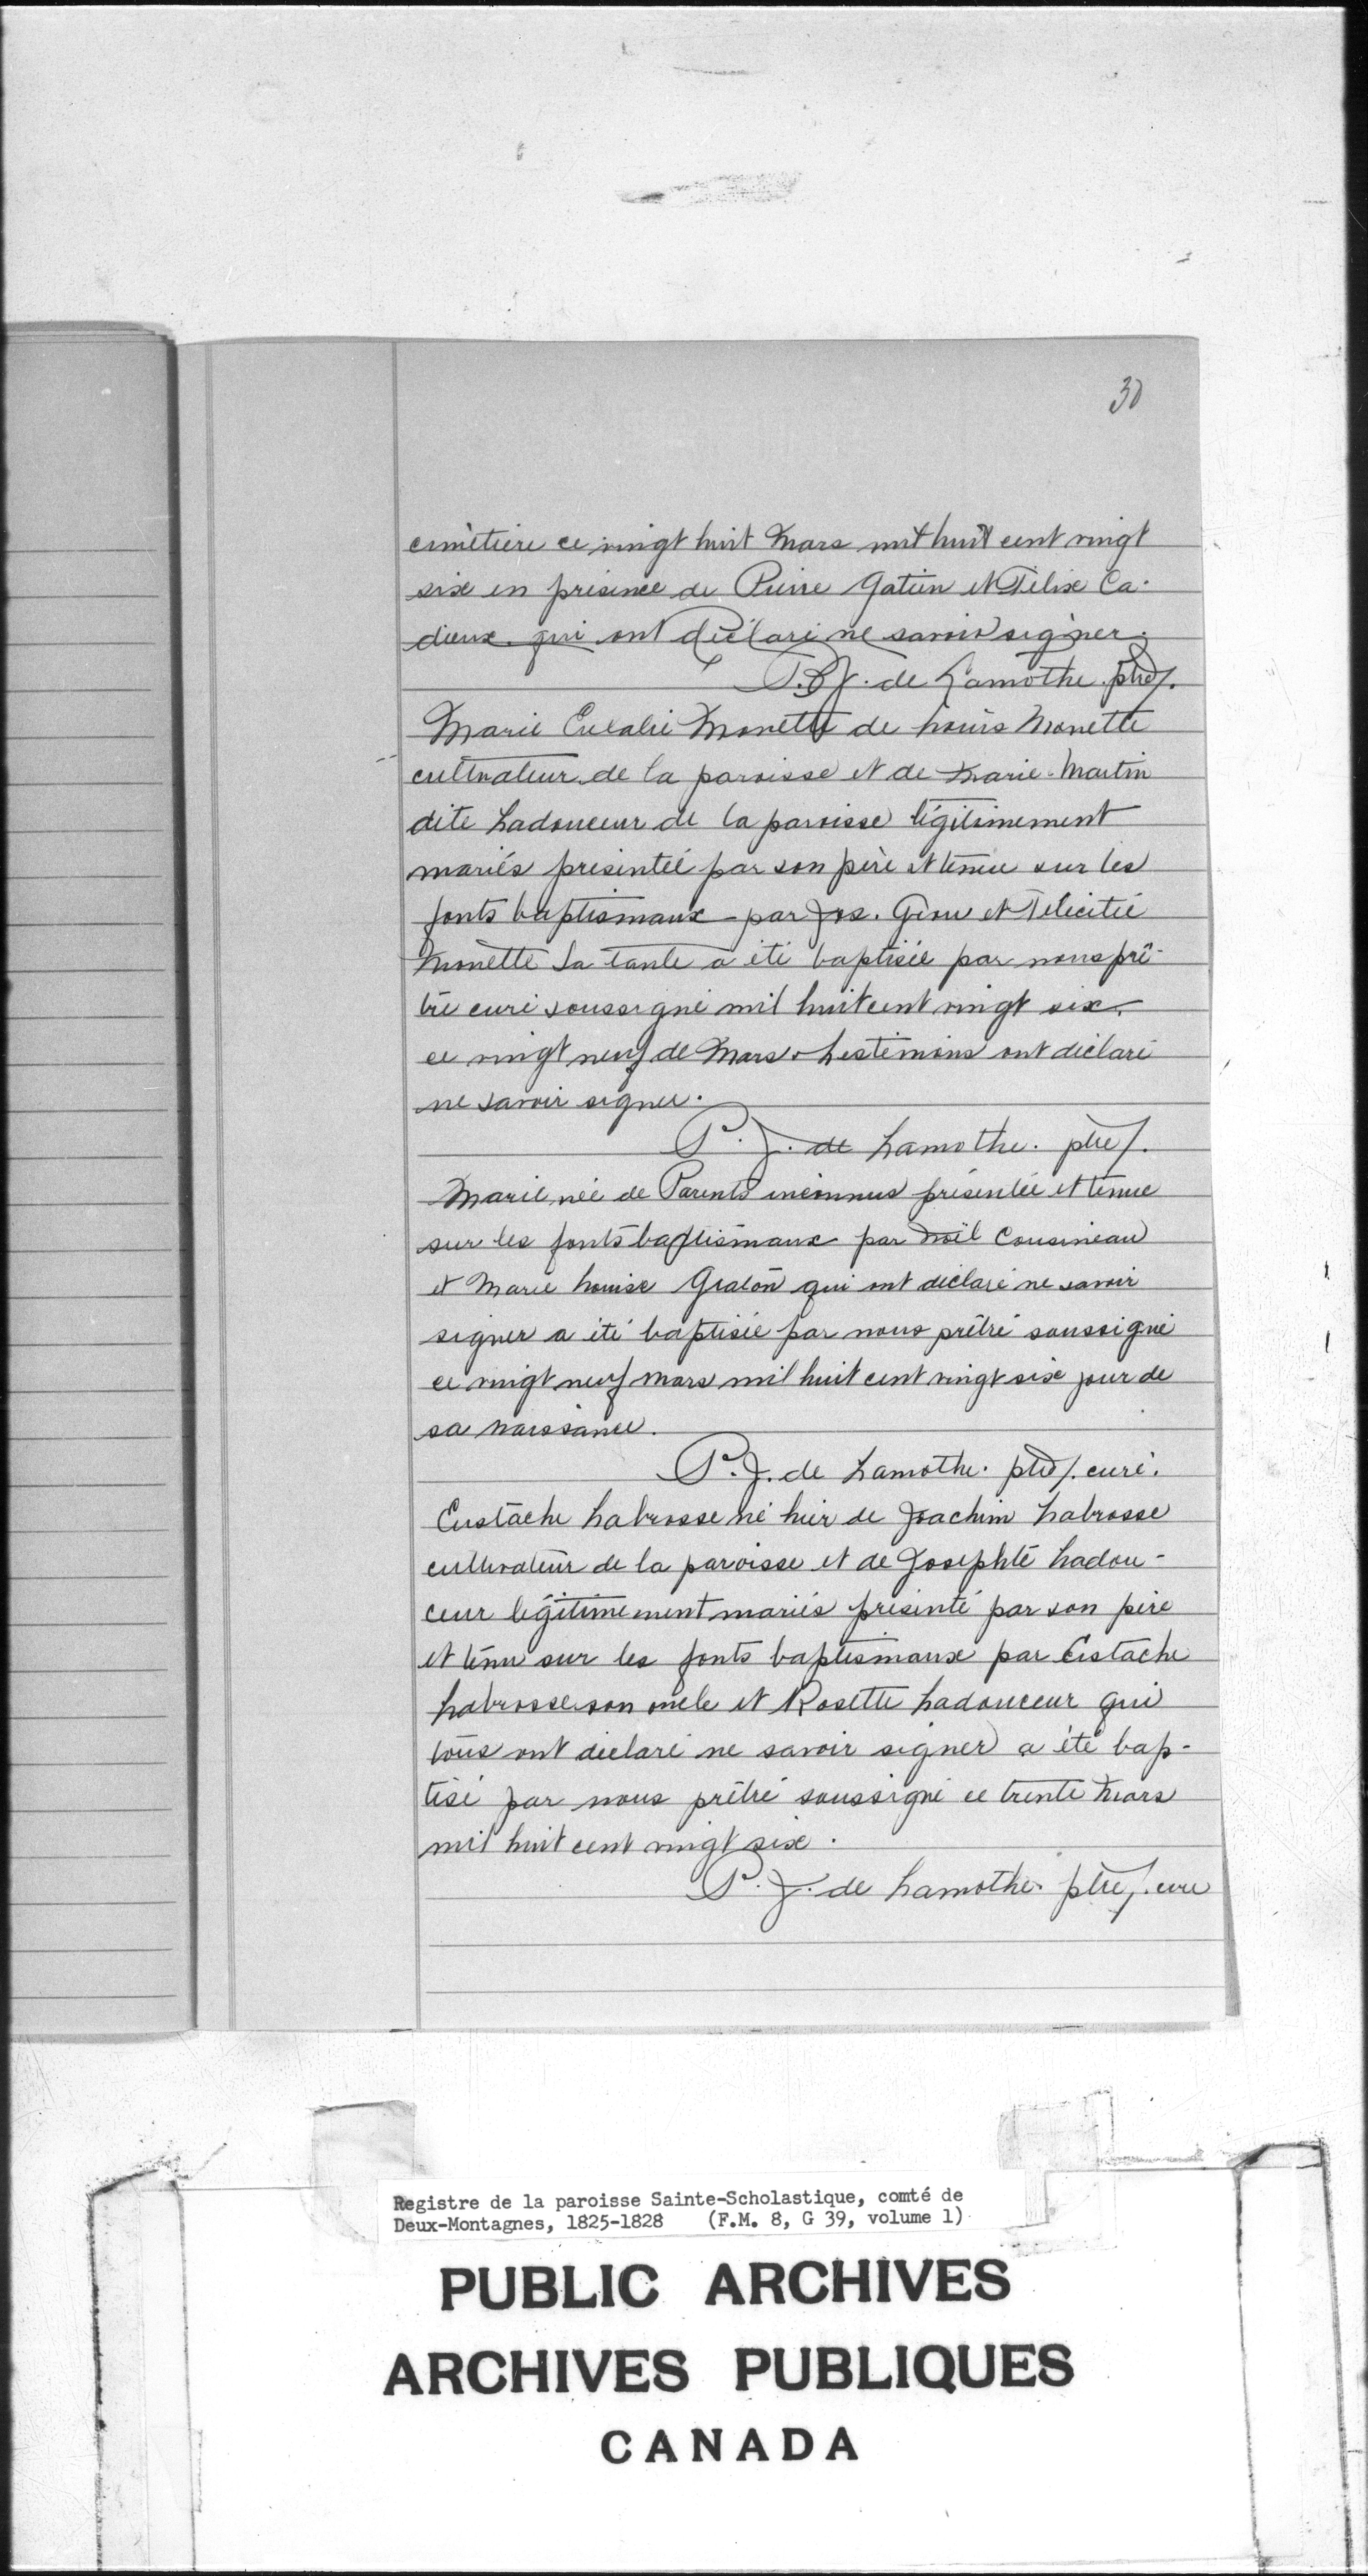 30
cimètière ce vingt huit Mars mil huit cent vingt
six en présence de Pierre Gatien et Félix Ca-
dieux qui ont déclaré ne savoir signer.
P. J. de Lamothe. ptre.
Marie Eulalie Monette de Louis Monette
cultivateur de la paroisse et de Marie Martin
dite Ladouceur de la paroisse légitimement
mariés présentée par son père et tenue sur les
fonts baptismaux par Jos. Giou et Félicitée
Monette Sa tante a été baptisée par nous prê-
tre curé soussigné mil huit cent vingt six.
ce vingt neuf de Mars. Les témoins ont déclaré
ne savoir signer.
P. J. de Lamothe. ptre.
Marie née de Parents inconnus présentée et tenue
sur les fonts baptismaux par Noël Cousineau
et Marie Louise Graton qui ont déclaré ne savoir
signer a été baptisée par nous prêtre soussigné
ce vingt neuf Mars mil huit cent vingt six jour de
sa naissance.
P. J. de Lamothe. ptre. curé.
Eustache Labrosse né hier de Joachim Labrosse
cultivateur de la paroisse et de Josephte Ladou-
ceur légitimement mariés présenté par son père
et tenu sur les fonts baptismaux par Eustache
Labrosse son oncle et Rosette Ladouceur qui
tous ont déclaré ne savoir signer a été bap-
tisé par nous prêtre soussigné ce trente Mars
mil huit cent vingt six.
P. J. de Lamothe. ptre. curé
Registre de la paroisse Sainte-Scholastique, comté de
Deux-Montagnes, 1825-1828 (F.M. 8, G 39, volume 1)
PUBLIC ARCHIVES
ARCHIVES PUBLIQUES
CANADA